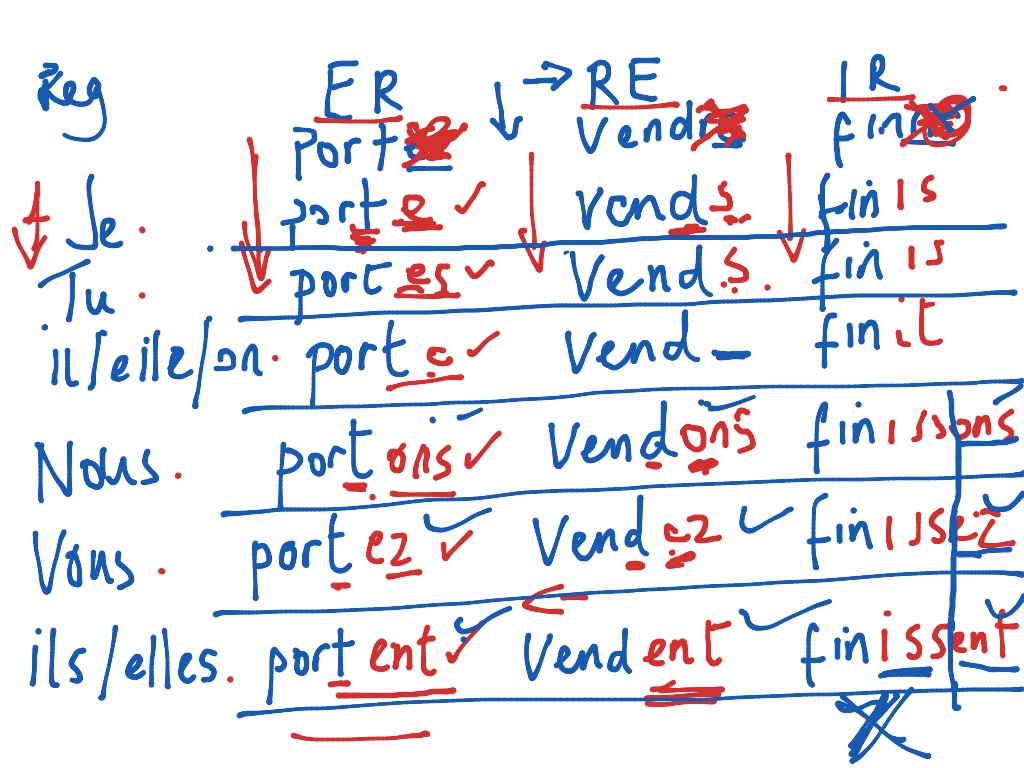 Reg ER → RE IR
port vend fin
Je port e vend s fin is
Tu port es vend s fin is
il/elle/on port e vend _ fin it
Nous port ons vend ons fin issons
Vous port ez vend ez fin issez
ils/elles port ent vend ent fin issent